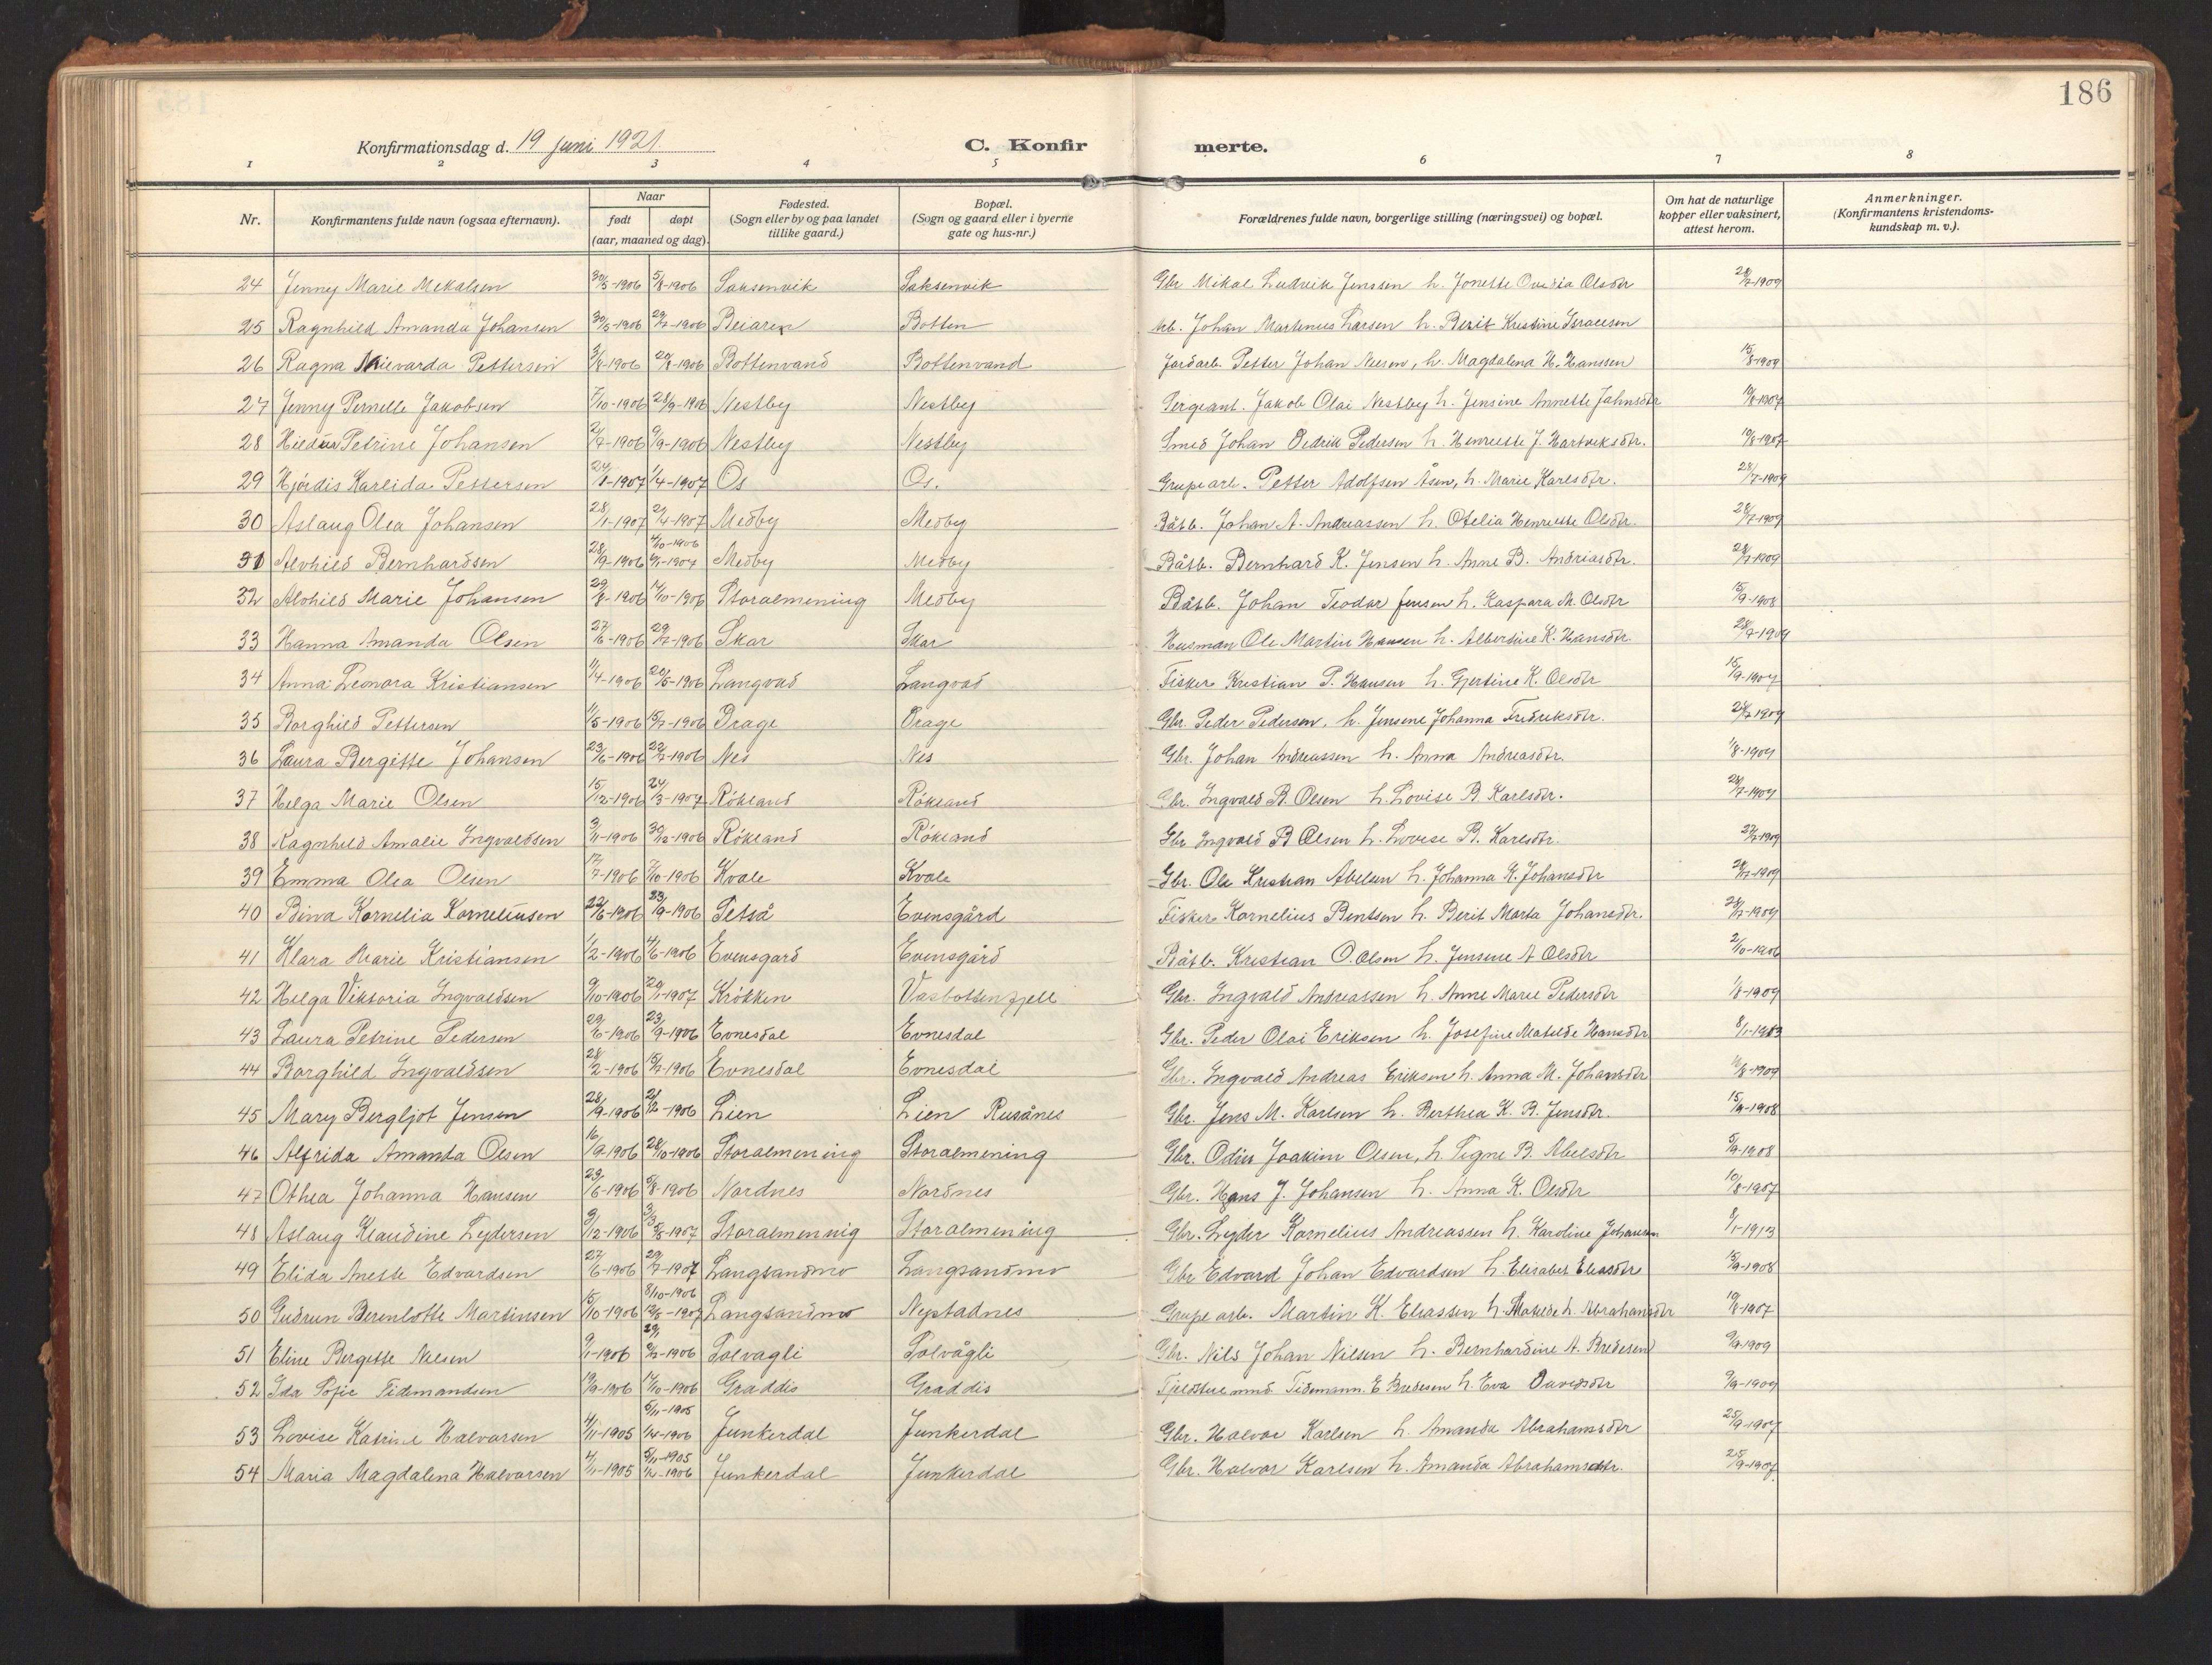 186
Konfirmationsdag d. 19 juni 1921. C. Konfir merte.
1 2 3 4 5 6 7 8
Nr. Konfirmantens fulde navn (ogsaa efternavn). Naar født døpt (aar, maaned og dag). Fødested. (Sogn eller by og paa landet tillike gaard.) Bopæl. (Sogn og gaard eller i byerne gate og hus-nr.) Forældrenes fulde navn, borgerlige stilling (næringsvei) og bopæl. Om hat de naturlige kopper eller vaksinert, attest herom. Anmerkninger. (Konfirmantens kristendoms-kundskap m. v.).
24 Jenny Marie Mikalsen 30/5-1906 5/8-1906 Saksenvik Saksenvik Gbr Mikal Ludvik Jenssen h. Jonette Olsdtr 28/7-1909
25 Ragnhild Amanda Johansen 30/5-1906 29/7-1906 Beiaren Botten Arb. Johan Martinus Larsen h. Berit Kristine Israelsen
26 Ragna Pettersen 3/8-1906 26/8-1906 Bottenvand Bottenvand Jordarb. Petter Johan Nilsen, h. Magdalena H. Hanssen 15/8-1909
27 Jenny Pernelle Jakobsen 7/10-1906 28/9-1906 Nestby Nestby Sergeant. Jakob Olai Nestby h. Jensine Annette Jahnsdtr 10/8-1907
28 Hildur Petrine Johansen 24/7-1906 9/9-1906 Nestby Nestby Smed Johan Dedrik Pedersen h. Henriette J. Hartviksdtr. 10/8-1907
29 Hjørdis Karlida Pettersen 24/1-1907 1/4-1907 Os Os. Grupearb. Petter Adolfsen Åsen, h. Marie Karlsdtr. 28/7-1909
30 Aslaug Olea Johansen 28/1-1907 2/4-1907 Medby Medby Båtb. Johan A. Andreassen h. Otelia Henriette Olsdtr. 28/7-1909
31 Alvhild Bernhardsen 28/9-1906 4/10-1906 Medby Medby Båtb. Bernhard K. Jensen h. Anne B. Andriasdtr. 28/7-1909
32 Alvhild Marie Johansen 29/8-1906 14/10-1906 Storalmening Medby Båtb. Johan Teodor Jensen h. Kaspara M. Olsdtr 15/9-1908
33 Hanna Amanda Olsen 27/6-1906 29/7-1906 Skar Skar Husman Ole Martin Hansen h. Albertine K. Hansdtr. 28/7-1909
34 Anna Leonora Kristiansen 1/4-1906 20/5-1906 Langvad Langvad Fisker Kristian P. Hansen h. Gjertine K. Olsdtr 15/9-1907
35 Borghild Pettersen 11/5-1906 15/7-1906 Drage Drage Gbr. Peder Pedersen, h. Jensine Johanna Fredriksdtr. 28/7-1909
36 Laura Bergitte Johansen 23/6-1906 22/7-1906 Nes Nes Gbr. Johan Andreassen h. Anna Andreasdtr. 1/8-1909
37 Helga Marie Olsen 15/12-1906 24/3-1907 Røkland Røkland Gbr. Ingvald B. Olsen h. Lovise B. Karlsdtr. 28/7-1909
38 Ragnhild Amalie Ingvaldsen 3/11-1906 30/12-1906 Røkland Røkland Gbr Ingvald B Olsen h. Lovise B. Karlsdtr. 27/7-1909
39 Emma Olea Olsen 17/7-1906 7/10-1906 Kvale Kvale Gbr. Ole Kristian Abelsen h. Johanna K. Johansdtr 28/7-1909
40 Bina Kornelia Korneliusen 22/6-1906 23/9-1906 Setså Evensgård Fisker Kornelius Bentsen h. Berit Marta Johansdtr. 28/7-1909
41 Klara Marie Kristiansen 1/2-1906 4/6-1906 Evensgard Evensgård Båtb. Kristian O. Olsen h. Jensine A Olsdtr 2/10-1906
42 Helga Viktoria Ingvaldsen 9/10-1906 20/1-1907 Krokken Vasbottenfjell Gbr. Ingvald Andreassen h. Anne Marie Pedersdtr 1/8-1909
43 Laura Petrine Pedersen 29/6-1906 23/9-1906 Evnesdal Evnesdal Gbr. Peder Olai Eriksen h. Josefine Matilde Hansdtr 8/1-1913
44 Borghild Ingvaldsen 28/2-1906 15/7-1906 Evnesdal Evnesdal Gbr. Ingvald Andreas Eriksen h. Anna M. Johansdtr 11/8-1909
45 Mary Bergljot Jensen 28/9-1906 2/12-1906 Lien Lien Rusånes Gbr. Jens M. Karlsen h. Berthea K. B. Jensdtr. 15/9-1908
46 Alfrida Amanda Olsen 16/9-1906 28/10-1906 Storalmening Storalmening Gbr. Odin Joakim Olsen, h. Signe B. Abelsdtr 5/9-1908
47 Othea Johanna Hansen 23/6-1906 5/8-1906 Nordnes Nordnes Gbr. Hans J. Johansen h. Anna K. Olsdtr 10/8-1907
48 Aslaug Klaudine Lydersen 9/12-1906 3/3 5/5-1907 Storalmennig Storalmening Gbr. Lyder Kornelius Andreassen h. Karoline Johansen 8/1-1913
49 Elida Anette Edvardsen 27/6-1906 29/7-1907 Langsandmo Langsandmo Gbr Edvard Johan Edvardsen h. Elisabet Eliasdtr 15/9-1908
50 Gudrun Berenlotte Martinsen 15/10-1906 8/10-1906 12/5-1907 Langsandmo Neptadnes Grupe arb. Martin K. Eliassen h. Matilde L. Abrahamsdtr 10/8-1907
51 Eline Bergitte Nilsen 9/1-1906 29/1 2/7-1906 Solvagli Solvågli Gbr. Nils Johan Nilsen h. Bernhardine A. Bredesen 9/9-1909
52 Ida Sofie Tidemandsen 19/9-1906 14/10-1906 Graddis Graddis Fjeldstuemnd. Tidemann E Bredesen h. Eva Davidsdtr 9/9-1909
53 Lovise Katrine Halvorsen 4/11-1905 5/11-1905 1/4-1906 Junkerdal Junkerdal Gbr. Halvor Karlsen h. Amanda Abrahamsdtr 25/9-1907
54 Maria Magdalena Halvorsen 4/11-1905 5/11-1905 1/4-1906 Junkerdal Junkerdal Gbr. Halvor Karlsen h. Amanda Abrahamsdtr. 25/9-1907